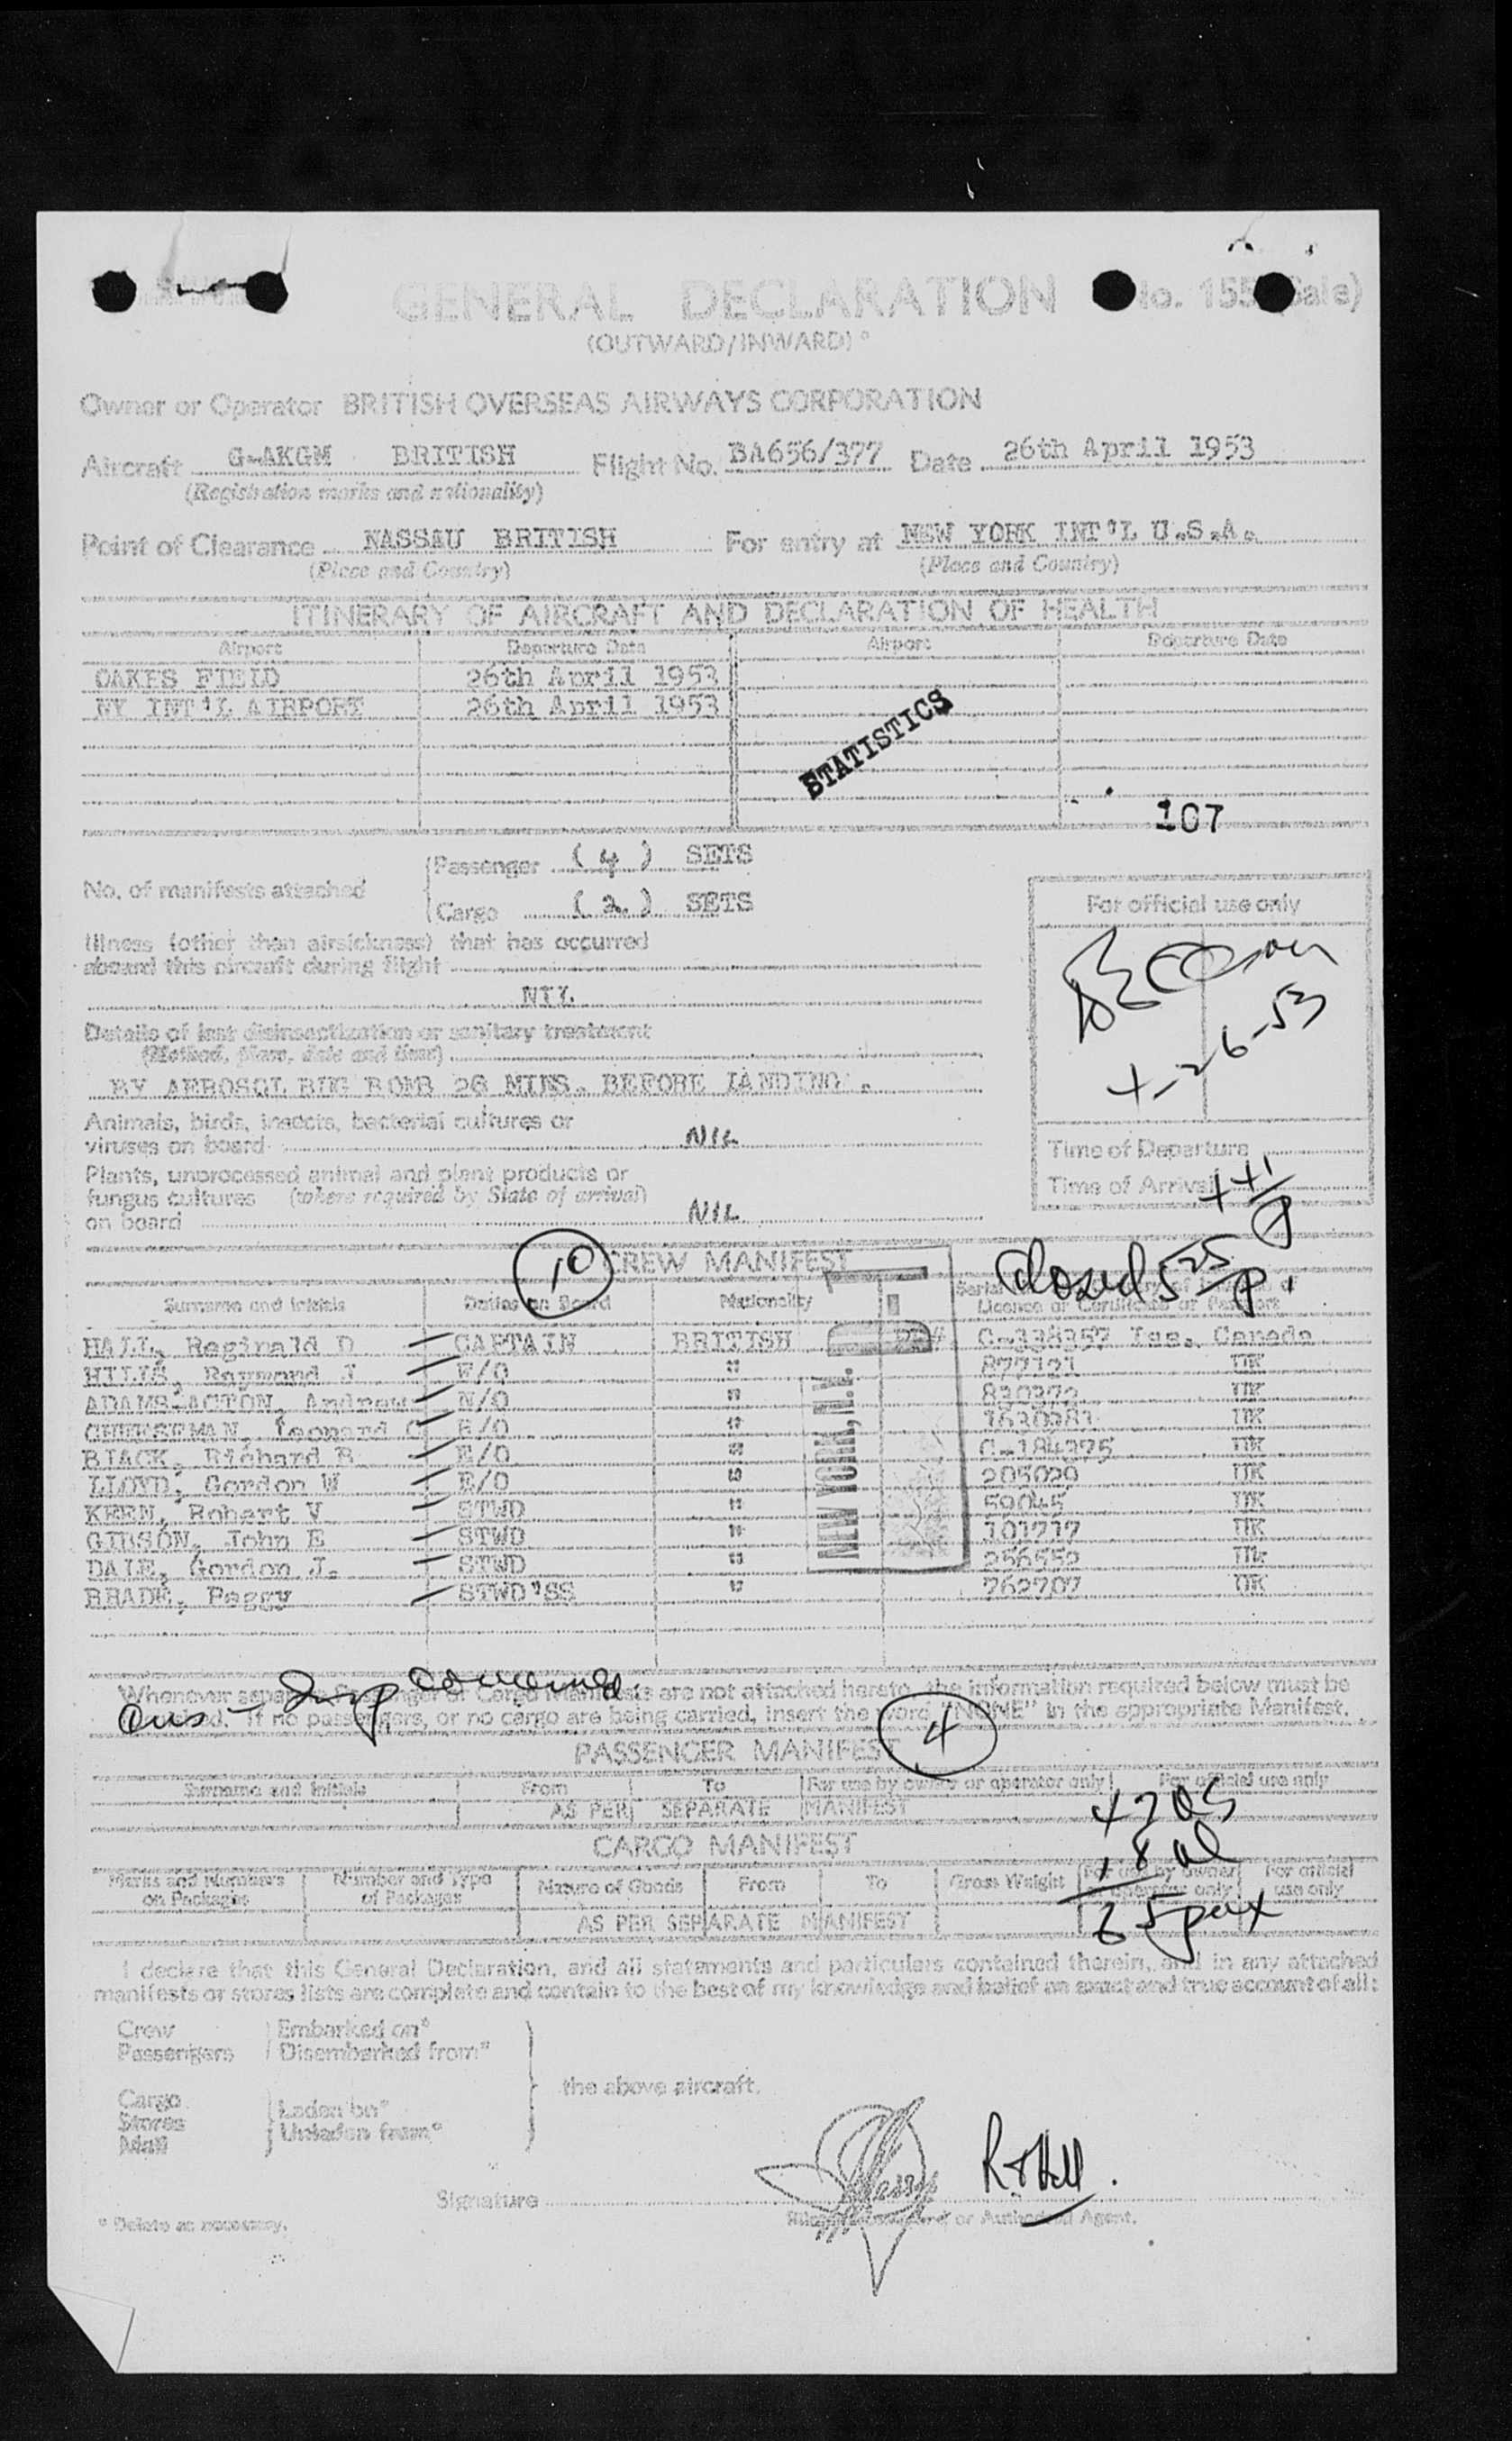 GENERAL DECLARATION
(OUTWARD/INWARD)*
Owner or Operator BRITISH OVERSEAS AIRWAYS CORPORATION
Aircraft G-AKGM BRITISH Flight No. BA656/377 Date 26th April 1953
(Registration marks and nationality)
Point of Clearance NASSAU BRITISH For entry at NEW YORK INT'L U.S.A.
(Place and Country) (Place and Country)
ITINERARY OF AIRCRAFT AND DECLARATION OF HEALTH
Airport Departure Date Airport Departure Date
OAKES FIELD 26th April 1953
NY INT'L AIRPORT 26th April 1953
STATISTICS
107
Passenger (4) SETS
No. of manifests attached
Cargo (2) SETS
For official use only
Illness (other than airsickness) that has occurred
aboard this aircraft during flight
NIL
4-26-53
Details of last disinsectization or sanitary treatment
(Method, place, date and time)
BY AEROSOL BUG BOMB 20 MINS. BEFORE LANDING.
Animals, birds, insects, bacterial cultures or
viruses on board NIL
Time of Departure
Plants, unprocessed animal and plant products or
fungus cultures (where required by State of arrival)
on board NIL
Time of Arrival
10 CREW MANIFEST
Closed 5 25/p.
Surname and initials Duties on Board Nationality
Licence or Certificate or Passport
HALL, Reginald D CAPTAIN BRITISH C-338357 Iss. Canada
HILLS, Raymond J F/O " 877121 UK
ADAMS-ACTON, Andrew N/O " 830372 UK
CHEESEMAN, Leonard C R/O " 1630281 UK
BLACK, Richard R E/O " C-184375 UK
LLOYD, Gordon W E/O " 205020 UK
KEEN, Robert V STWD " 59045 UK
GIBSON, John E STWD " 101717 UK
DALE, Gordon J. STWD " 256552 UK
BEADE, Peggy STWD'SS " 762707 UK
NEW YORK, N.Y.
Whenever separate Passenger or Cargo Manifests are not attached hereto, the information required below must be
If no passengers, or no cargo are being carried, insert the word "NONE" in the appropriate Manifest.
4
PASSENGER MANIFEST
Surname and initials From To For use by owner or operator only For official use only
AS PER SEPARATE MANIFEST
CARGO MANIFEST
Marks and Numbers on Packages Number and Type of Packages Nature of Goods From To Gross Weight For use by owner or operator only For official use only
AS PER SEPARATE MANIFEST
65 pax
I declare that this General Declaration, and all statements and particulars contained therein, and in any attached
manifests or stores lists are complete and contain to the best of my knowledge and belief an exact and true account of all:
Crew Embarked on*
Passengers Disembarked from*
the above aircraft.
Cargo
Stores Laden on*
Mail Unladen from*
Signature
* Delete as necessary.
or Authorised Agent.